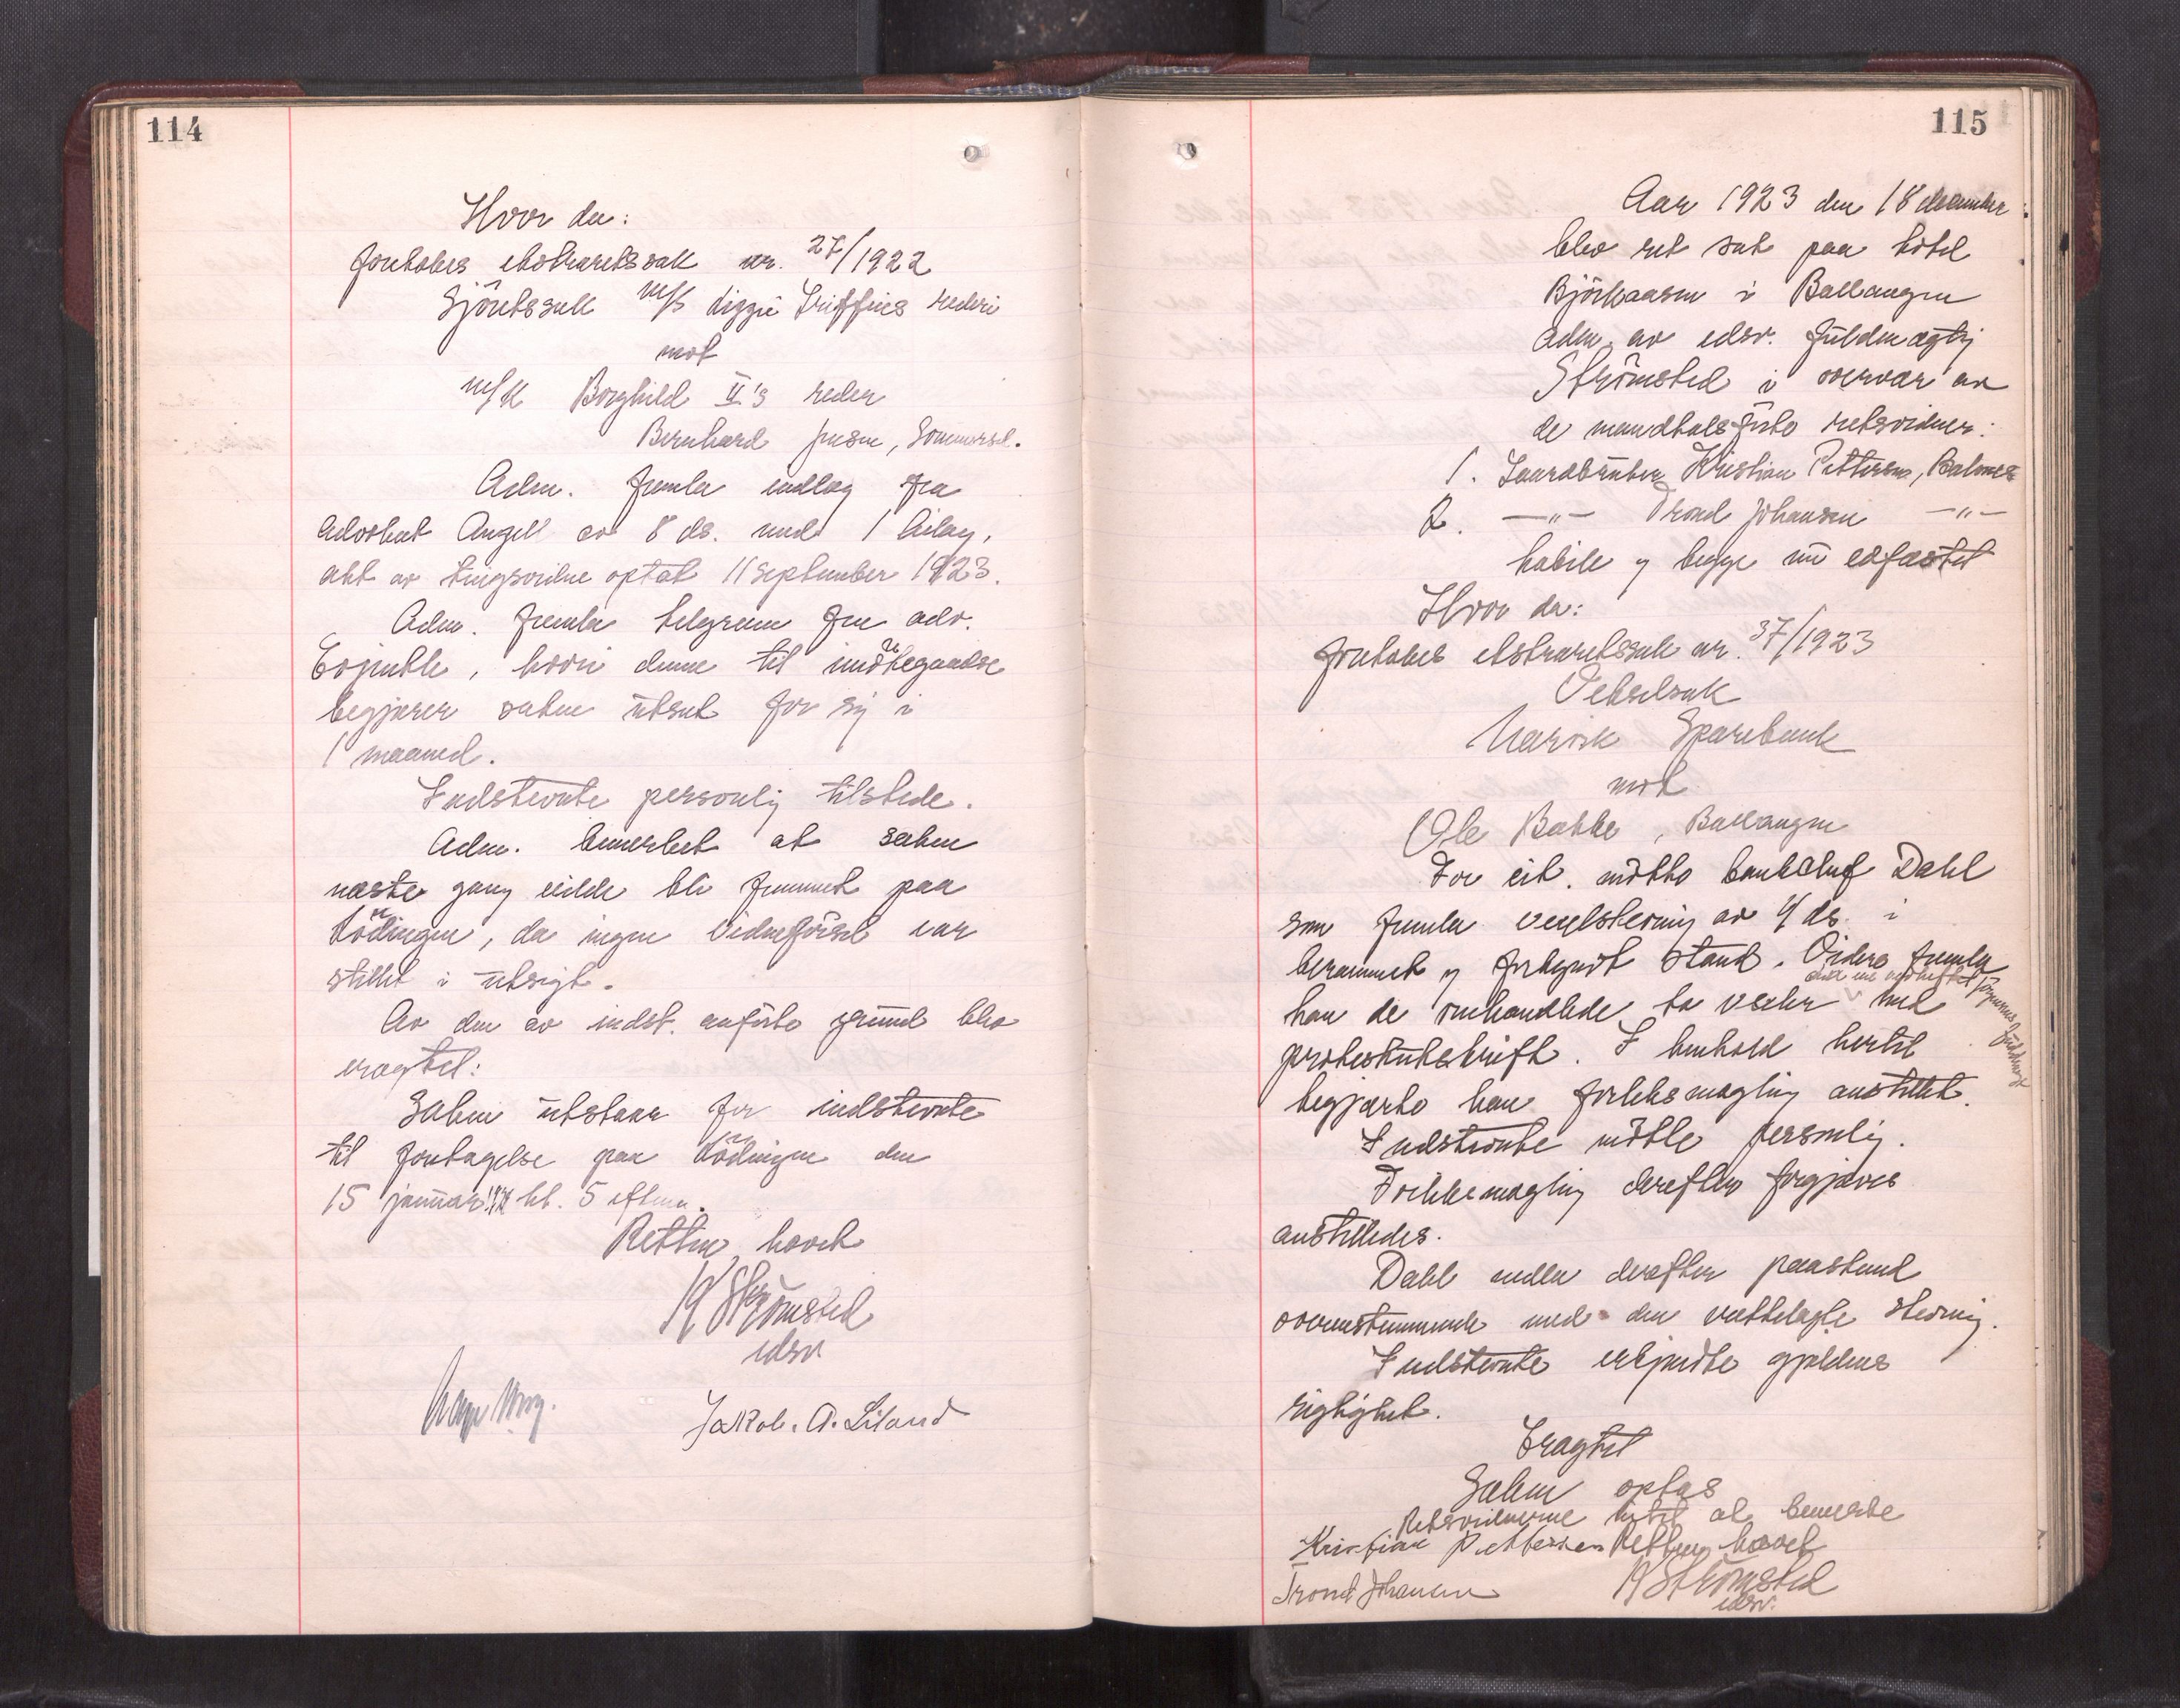 114
Hvor da:
foretokes ekstraretssak nr. 27/1922
Sjöretssak M/S Lizzie Griffins rederi
mot
M/K Borghild II's reder
Bernhard Jensen, Sommersel.
Adm. fremla indlæg fra
advokat Angell av 8 ds. med 1 bilag,
akt av tingsvidne optat 11 september 1923.
Adm. fremla telegram fra adv.
Esjeholm, hvori denne til imötegaaelse
begjærer saken utsat for sig i
1 maaned.
Indstevnte personlig tilstede.
Adm. bemerket at saken
næste gang vilde bli fremmet paa
Lödingen, da ingen vidneförsel var
stillet i utsigt.
Av den av indst. anförte grund blev
eragtet:
Saken utstaar for indstevnte
til foretagelse paa Lödingen den
15 januar 1924 kl. 5 efterm.
Retten hævet
K Strömsted
edsv
Jakob. A. Liland
115
Aar 1923 den 18 december
blev ret sat paa hotel
Björkaasen i Ballangen
adm. av edsv. fuldmægtig
Strömsted i overvær av
de mandtalsförte retsvidner:
1. Gaardbruker Kristian Pettersen, Balnes
2. —"— Trond Johansen —"—
habile og begge nu edfæstet
Hvor da:
foretokes ekstraretssak nr. 37/1923
Vekselsak
Narvik Sparebank
mot
Ole Bakke, Ballangen
For cit. mötte bankchef Dahl
som fremla vexelstevning av 4 ds. i
berammet og forkyndt stand. Videre fremla
han de omhandlede to vexler med
protestutskrift. I henhold hertil
begjærte han forliksmægling anstillet.
Indstevnte mötte personlig.
Forliksmægling derefter forgjæves
anstilledes.
Dahl nedla derefter paastand
overenstemmende med den vedtelagte stevning.
Indstevnte erkjendte gjældens
rigtighet.
Eragtet
Saken optas
Retsvidnerne intet at bemerke
Kristian Pettersen Retten hævet
Trond Johansen K Strömsted
edsv.